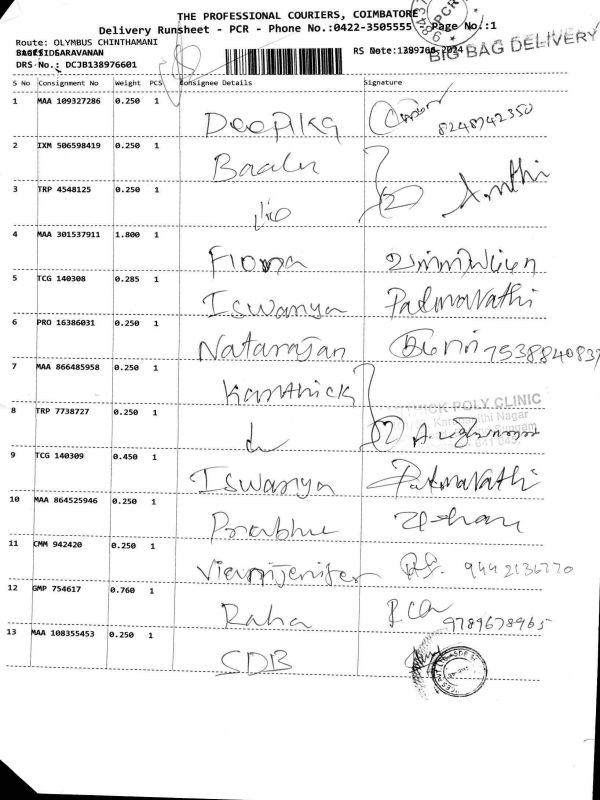 THE PROFESSIONAL COURIERS, COIMBATORE
Delivery Runsheet - PCR - Phone No.:0422-3505555 Page No.:1
Route: OLYMBUS CHINTHAMANI
SARAVANAN RS Note:1389760-2024
BIG BAG DELIVERY
DRS No.: DCJB138976601
S No Consignment No Weight PCS Consignee Details Signature
1 MAA 109327286 0.250 1 Deepika 8248742350
2 IXM 506598419 0.250 1
3 TRP 4548125 0.250 1
4 MAA 301537911 1.800 1 Fiona
5 TCG 140308 0.285 1 Iswarya Padmavathi
6 PRO 16386031 0.250 1 Natarajan 7538840837
7 MAA 866485958 0.250 1 Karthick
POLY CLINIC
8 TRP 7738727 0.250 1
9 TCG 140309 0.450 1 Iswarya Padmavathi
10 MAA 864525946 0.250 1 Prabhu
11 CMM 942420 0.250 1 9442136770
12 GMP 754617 0.760 1 Raha 9789678965
13 MAA 108355453 0.250 1 SDB